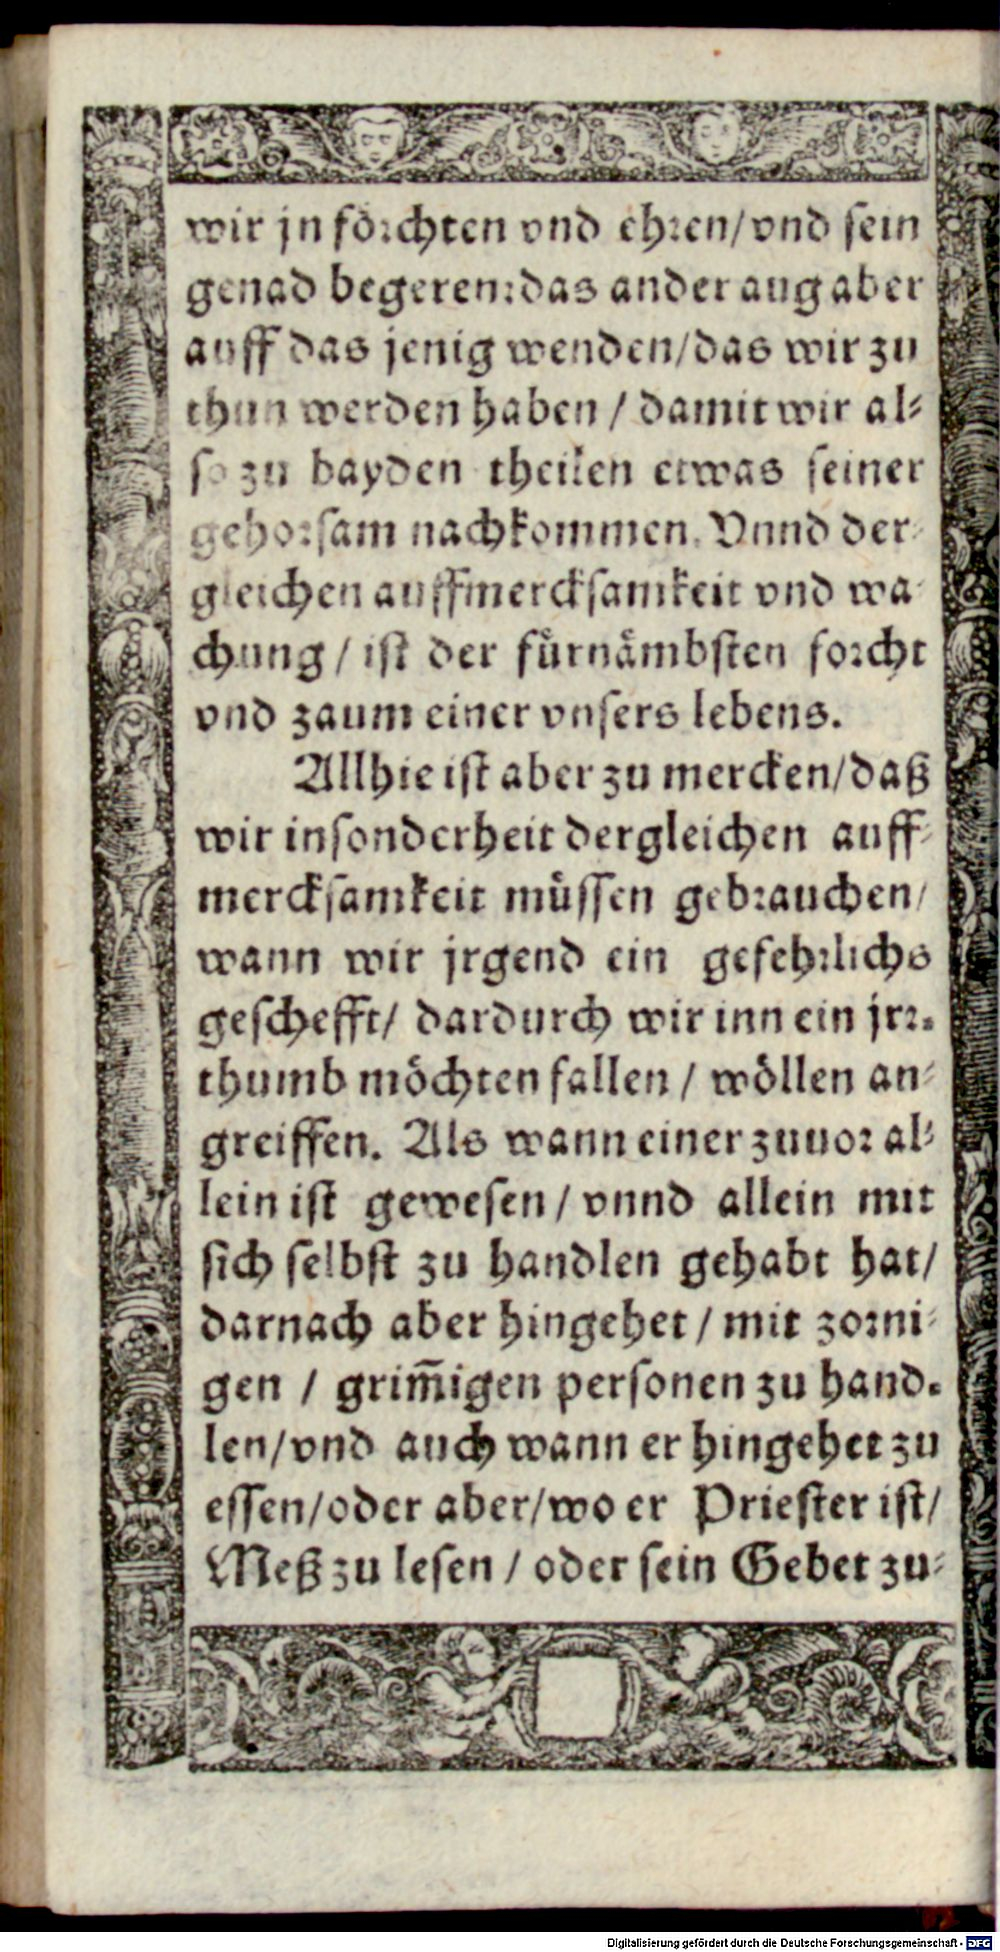 wir jn förchten vnd ehren/vnd sein
genad begeren: das ander aug aber
auff das jenig wenden/das wir zu
thun werden haben / damit wir al⸗
so zu bayden theilen etwas seiner
gehorsam nachkommen. Vnnd der⸗
gleichen auffmercksamkeit vnd wa⸗
chung / ist der fürnåmbsten forcht
vnd zaum einer vnsers lebens.
Allhie ist aber zu mercken/daß
wir insonderheit dergleichen auff⸗
mercksamkeit müssen gebrauchen/
wann wir jrgend ein gefehrlichs
geschefft/ dardurch wir inn ein jrr⸗
thumb möchten fallen / wöllen an⸗
greiffen. Als wann einer zuuor al⸗
lein ist gewesen / vnnd allein mit
sich selbst zu handlen gehabt hat/
darnach aber hingehet / mit zorni⸗
gen / grim̃igen personen zu hand⸗
len/vnd auch wann er hingehet zu
essen/oder aber/wo er Priester ist/
Meß zu lesen / oder sein Gebet zu⸗
Digitalisierung gefördert durch die Deutsche Forschungsgemeinschaft - DFG